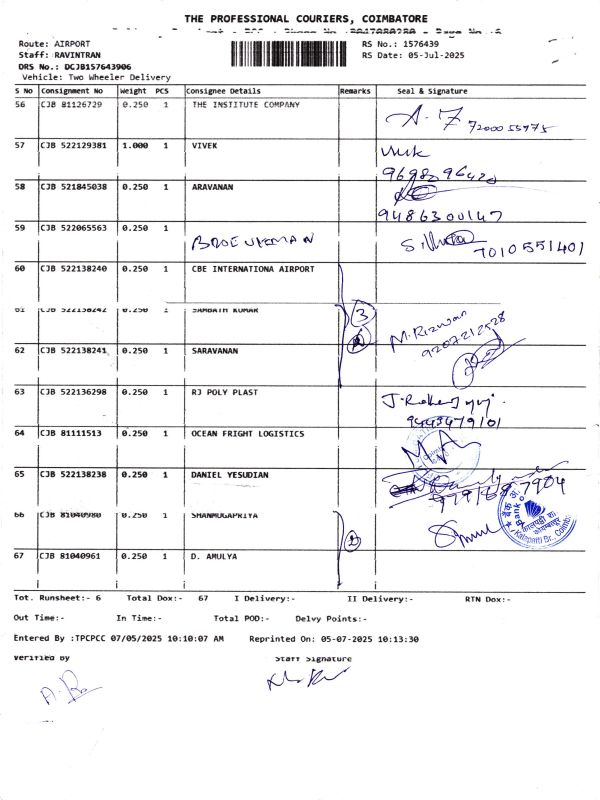 THE PROFESSIONAL COURIERS, COIMBATORE
Route: AIRPORT
RS No.: 1576439
Staff: RAVINTRAN
RS Date: 05-Jul-2025
DRS No.: DCJB157643906
Vehicle: Two Wheeler Delivery
S No Consignment No Weight PCS Consignee Details Remarks Seal & Signature
56 CJB 81126729 0.250 1 THE INSTITUTE COMPANY
A.Z 7200055975
57 CJB 522129381 1.000 1 VIVEK
58 CJB 521845038 0.250 1 ARAVANAN
9486300147
59 CJB 522065563 0.250 1
7010551401
60 CJB 522138240 0.250 1 CBE INTERNATIONA AIRPORT
61 CJB 522138242 0.250 1 SAMBATH KUMAR
3
M.Rizwan
9207212528
62 CJB 522138241 0.250 1 SARAVANAN
63 CJB 522136298 0.250 1 RJ POLY PLAST
9443479101
64 CJB 81111513 0.250 1 OCEAN FRIGHT LOGISTICS
65 CJB 522138238 0.250 1 DANIEL YESUDIAN
66 CJB 81040980 0.250 1 SHANMUGAPRIYA
2
67 CJB 81040961 0.250 1 D. AMULYA
Tot. Runsheet:- 6 Total Dox:- 67 I Delivery:- II Delivery:- RTN Dox:-
Out Time:- In Time:- Total POD:- Delvy Points:-
Entered By :TPCPCC 07/05/2025 10:10:07 AM Reprinted On: 05-07-2025 10:13:30
Verified By Staff Signature